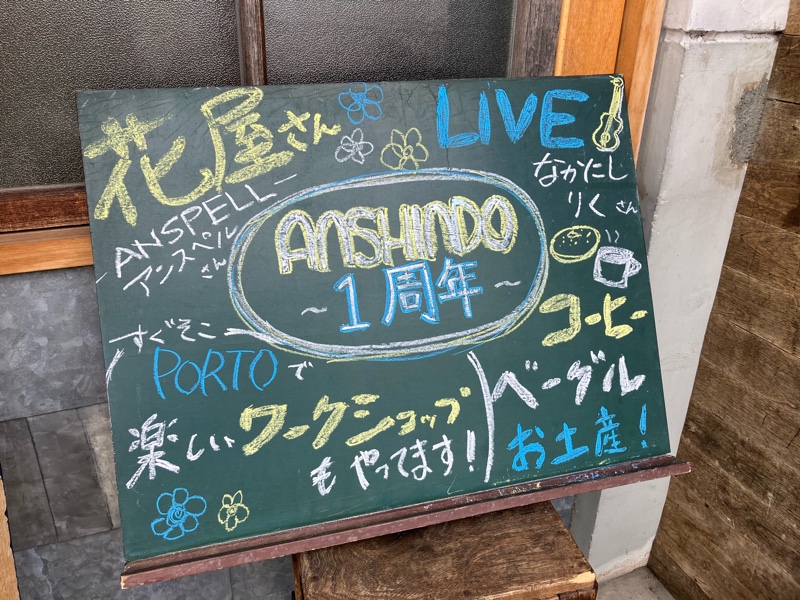 花屋さん
ANSPELL
アンスペルさん
LIVE
なかにし
りくさん
ANSHINDO
~1周年~
コーヒー
ベーグル
お土産!
すぐそこ
PORTOで
楽しいワークショップ
もやってます!